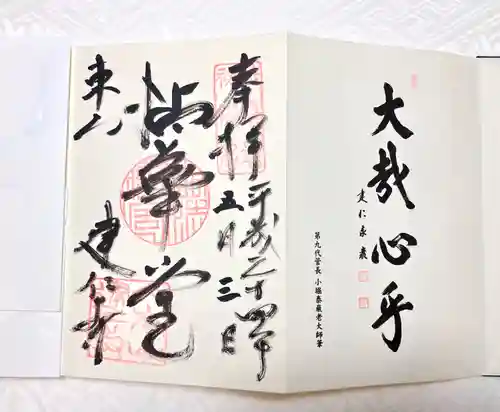 大哉心乎
建仁泰巖
第九代管長 小堀泰巖老大師筆
奉拝
平成二十四年
五月三日
拈華堂
東山
建仁寺